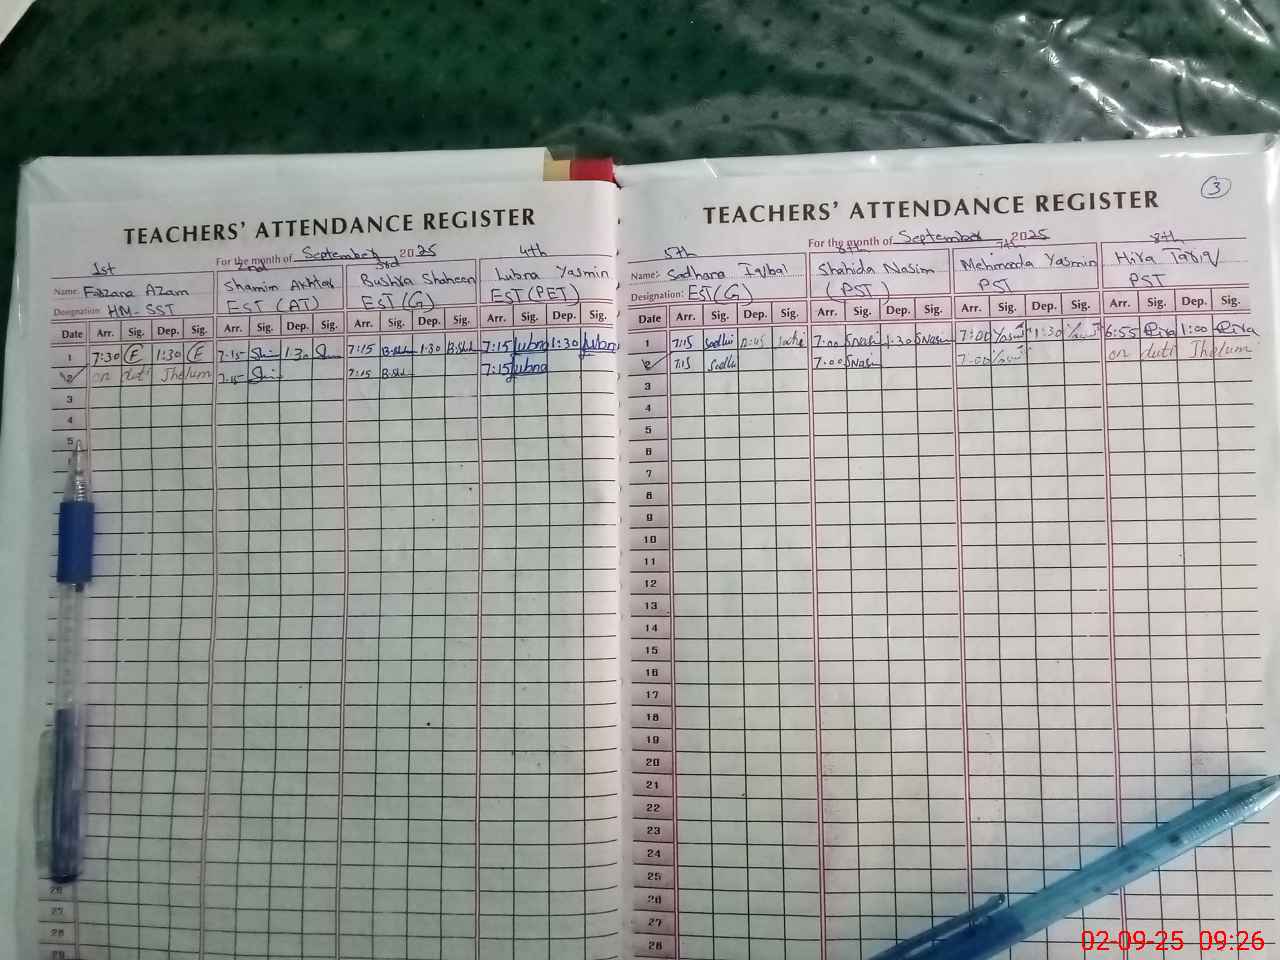 TEACHERS' ATTENDANCE REGISTER
For the month of September 2025
1st 2nd 3rd 4th
Name: Fozana Azam Shamim Akhtar Bushra Shaheen Lubna Yasmin
Designation: HM-SST EST (AT) EST (G) EST (PET)
Date Arr. Sig. Dep. Sig. Arr. Sig. Dep. Sig. Arr. Sig. Dep. Sig. Arr. Sig. Dep. Sig.
1 7:30 1:30 7:15 1:30 7:15 1:30 7:15 Lubna 1:30 Lubna
on duti Jhelum 7:15 7:15 7:15 Lubna
3
4
5
26
27
28
29
3
TEACHERS' ATTENDANCE REGISTER
For the month of September 2025
5th 6th 7th 8th
Name: Sadhana Iqbal Shahida Nasim Mehmooda Yasmin Hira Tariq
Designation: EST (G) (PST) PST PST
Date Arr. Sig. Dep. Sig. Arr. Sig. Dep. Sig. Arr. Sig. Dep. Sig. Arr. Sig. Dep. Sig.
1 7:15 7:00 Nasim 1:30 Nasim 7:00 1:30 6:55 Hira 1:00 Hira
7:15 7:00 Nasim 7:00 on duti Jhelum
3
4
5
6
7
8
9
10
11
12
13
14
15
16
17
18
19
20
21
22
23
24
25
26
27
28
02-09-25 09:26